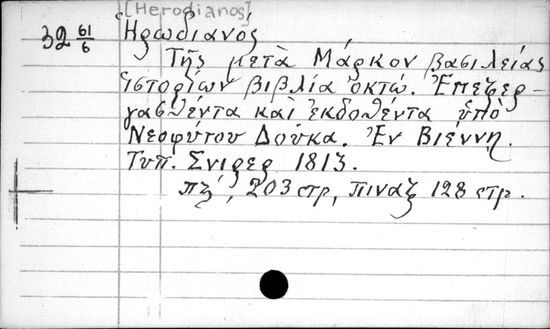 [Herodianos]
32 61/6 Ἡρωδιανός
Τῆς μετὰ Μάρκον βασιλείας
ἱστοριῶν βιβλία ὀκτώ. Ἐπεξερ-
γασθέντα καὶ ἐκδοθέντα ὑπὸ
Νεοφύτου Δούκα. Ἐν Βιέννῃ.
Τυπ. Σνιρερ 1813.
πζ', 203 στρ, πιναξ 128 στρ.